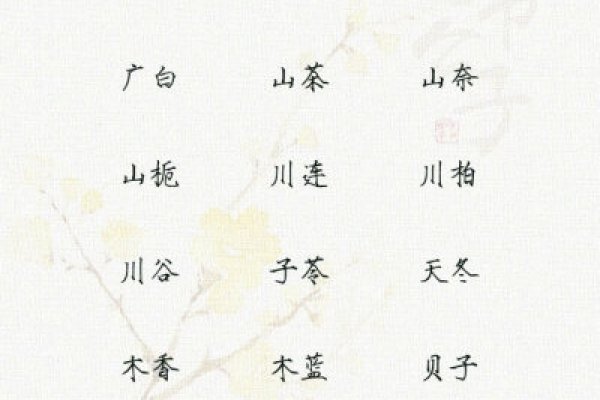 广白 山茶 山奈
山栀 川连 川柏
川谷 子苓 天冬
木香 木蓝 贝子